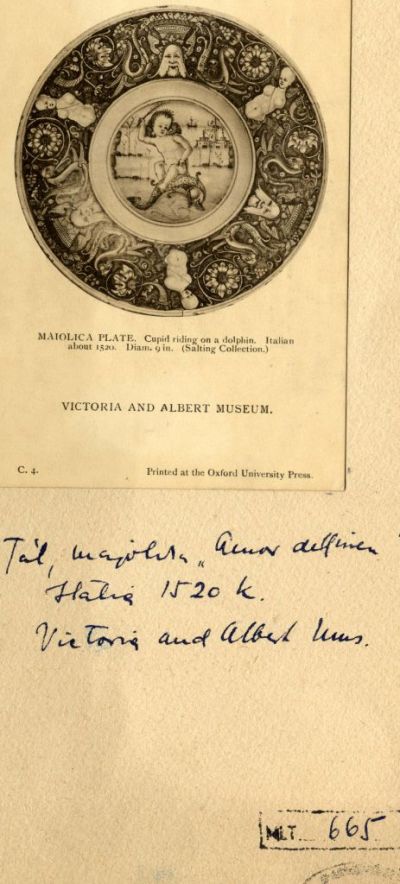 MAIOLICA PLATE. Cupid riding on a dolphin. Italian
about 1520. Diam. 9 in. (Salting Collection.)
VICTORIA AND ALBERT MUSEUM.
C. 4.
Printed at the Oxford University Press.
Tál, majolika „Amor delfinen"
Itália 1520 k.
Victoria and Albert Mus.
MLT. 665